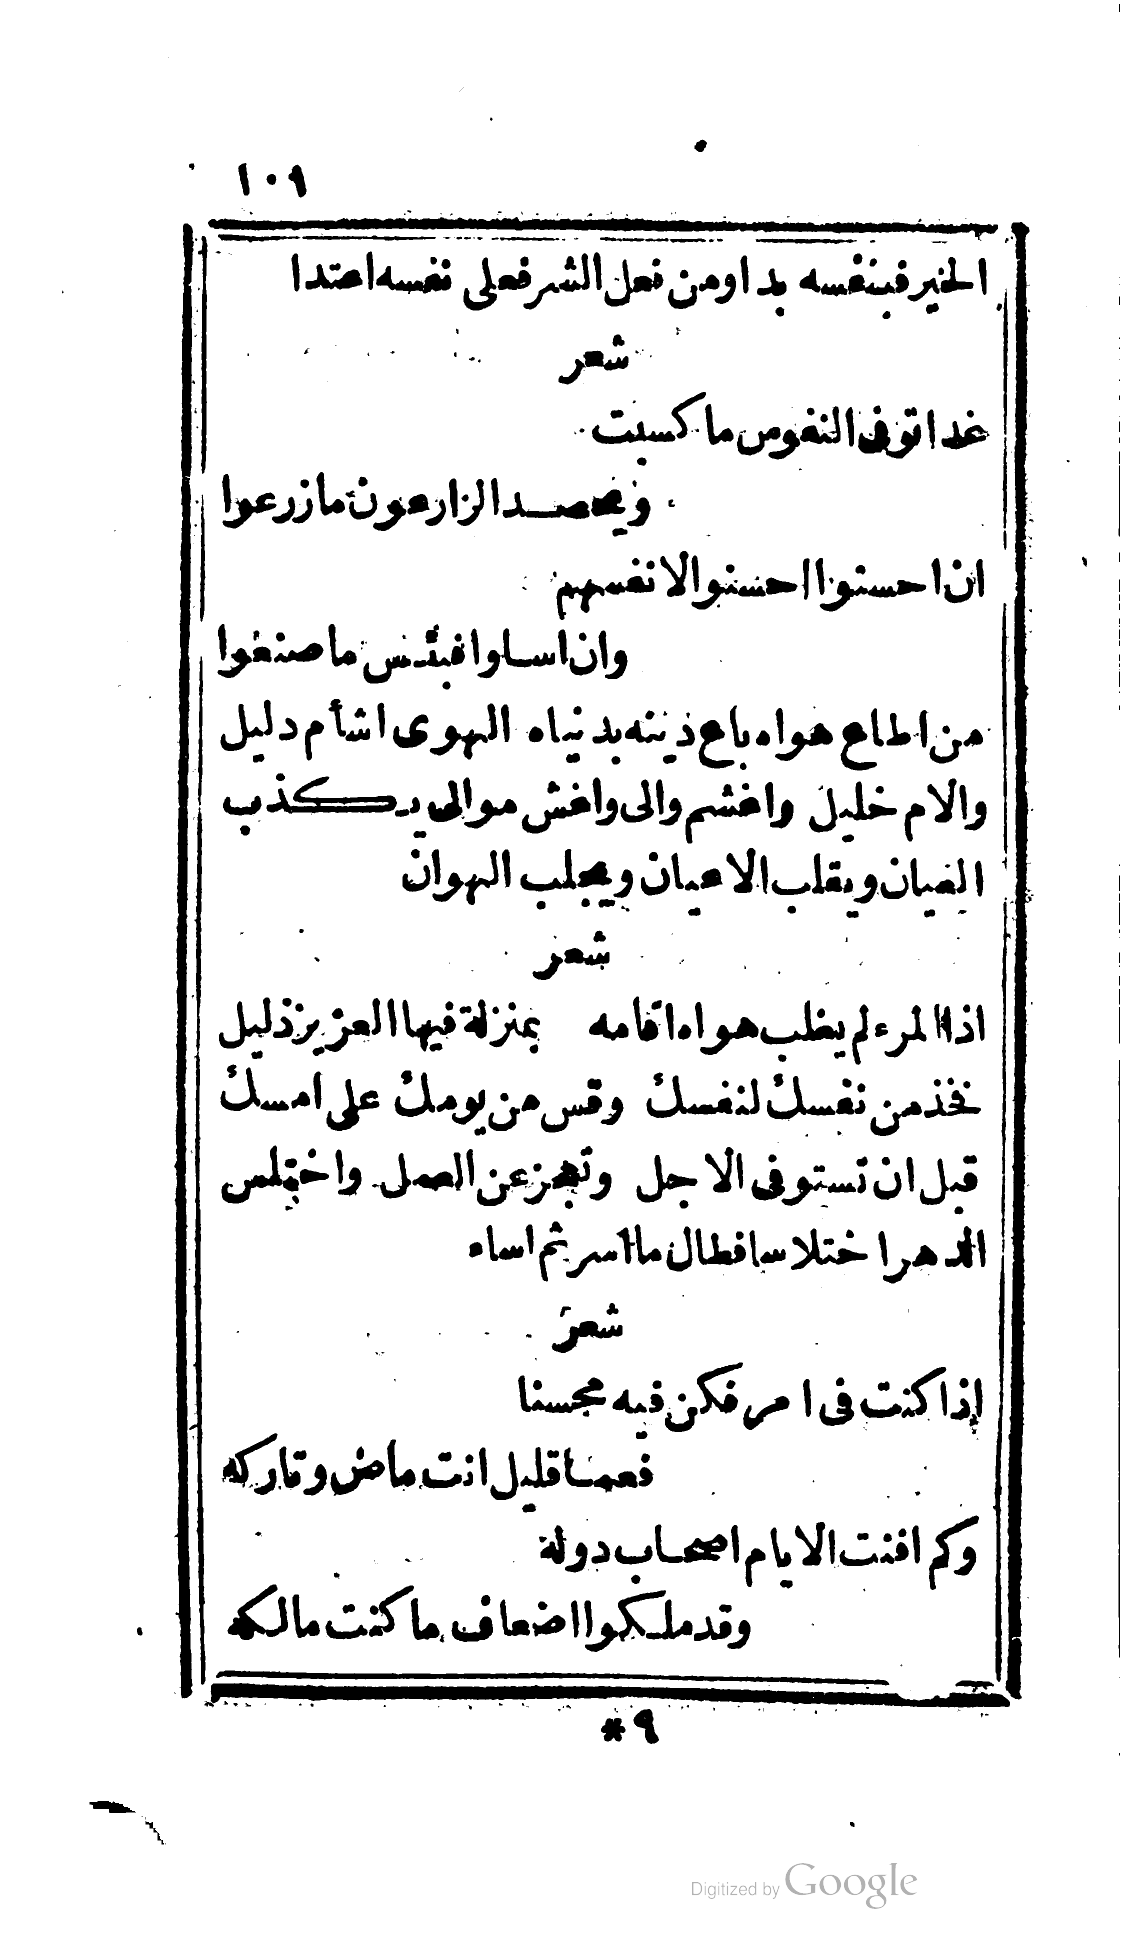 ١٠٩
الخير فبنفسه بدا ومن فعل الشر فعلى نفسه اعتدا
شعر
غدا توفى النفوس ما كسبت
ويحصد الزارعون ما زرعوا
ان احسنوا احسنوا لانفسهم
وان اساوا فبئس ما صنعوا
من اطاع هواه باع دينه بدنياه الهوى اشأم دليل
والام خليل واغشم والى واغش موالى يكذب
العيان ويقلب الاعيان ويجلب الهوان
شعر
اذا المرء لم يغلب هواه اقامه بمنزلة فيها العزيز ذليل
فخذ من نفسك لنفسك وقس من يومك على امسك
قبل ان تستوفى الاجل وتعجز عن العمل واختلس
الدهر اختلاسا فطال ما اسر ثم اساء
شعر
إذا كنت فى امر فكن فيه محسنا
فعما قليل انت ماض وتاركه
وكم افنت الايام اصحاب دولة
وقد ملكوا اضعاف ما كنت مالكه
٩ *
Digitized by Google